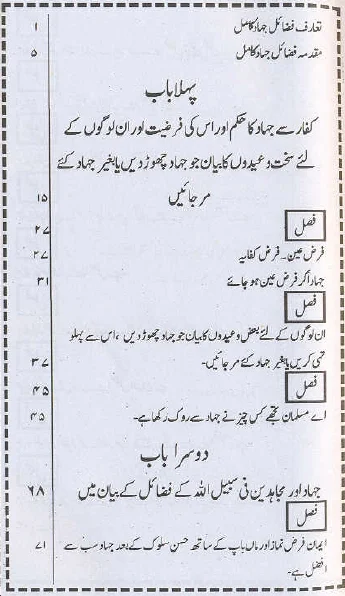 تعارف فضائل جہاد کامل ۱
مقدمہ فضائل جہاد کامل ۵
پہلا باب
کفار سے جہاد کا حکم اور اس کی فرضیت اور ان لوگوں کے
لئے سخت وعیدوں کا بیان جو جہاد چھوڑ دیں یا بغیر جہاد کئے
مر جائیں ۱۵
فصل ۲۷
فرض عین۔ فرض کفایہ ۲۷
جہاد اگر فرض عین ہو جائے ۳۱
فصل
ان لوگوں کے لئے بعض وعیدوں کا بیان جو جہاد چھوڑ دیں ،اس سے پہلو
تہی کریں یا بغیر جہاد کئے مر جائیں۔ ۳۷
فصل ۴۵
اے مسلمان تجھے کس چیز نے جہاد سے روک رکھا ہے۔ ۴۵
دوسرا باب
جہاد اور مجاہدین فی سبیل اللہ کے فضائل کے بیان میں ۶۸
فصل
ایمان فرض نماز اور ماں باپ کے ساتھ حسن سلوک کے بعد جہاد سب سے ۷۱
افضل ہے۔